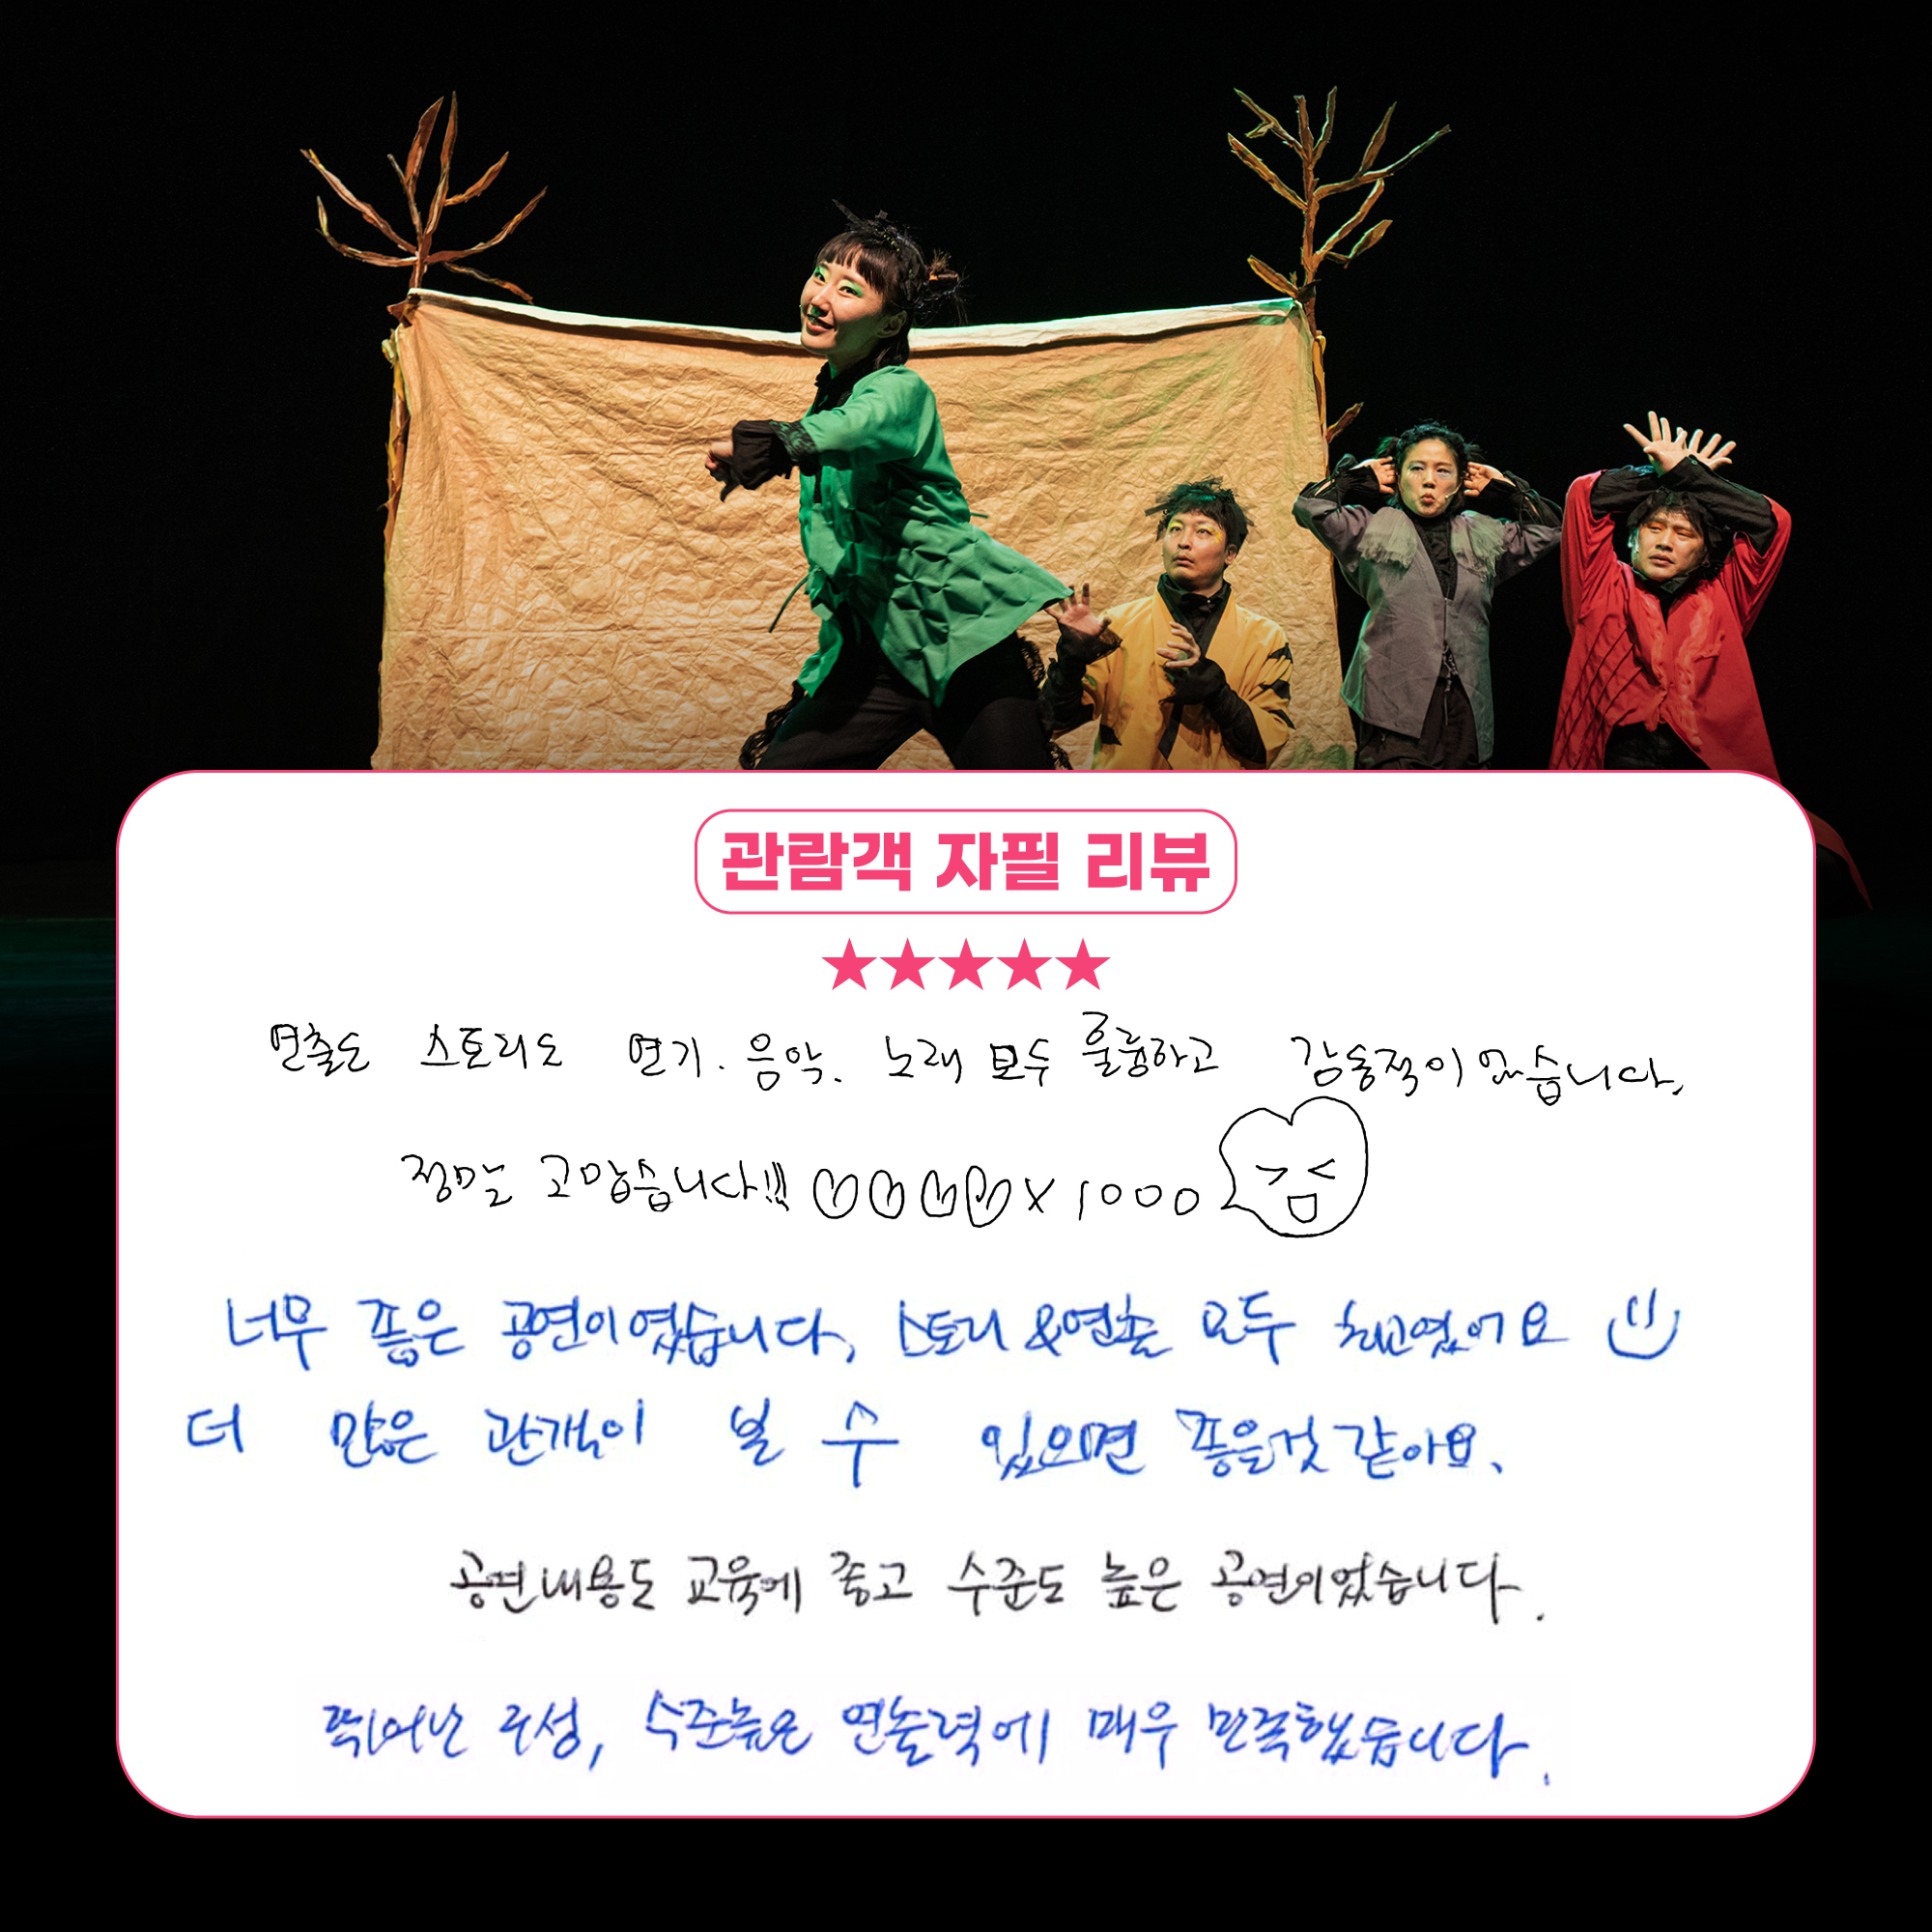 관람객 자필 리뷰
★★★★★
연출도 스토리도 연기. 음악. 노래 모두 훌륭하고 감동적이었습니다.
정말 고맙습니다!!! ♡♡♡♡ X 1000
너무 좋은 공연이였습니다, 스토리&연출 모두 최고였어요
더 많은 관객이 볼 수 있으면 좋을것 같아요.
공연내용도 교육에 좋고 수준도 높은 공연이었습니다.
뛰어난 구성, 수준높은 연출력에 매우 만족했습니다.